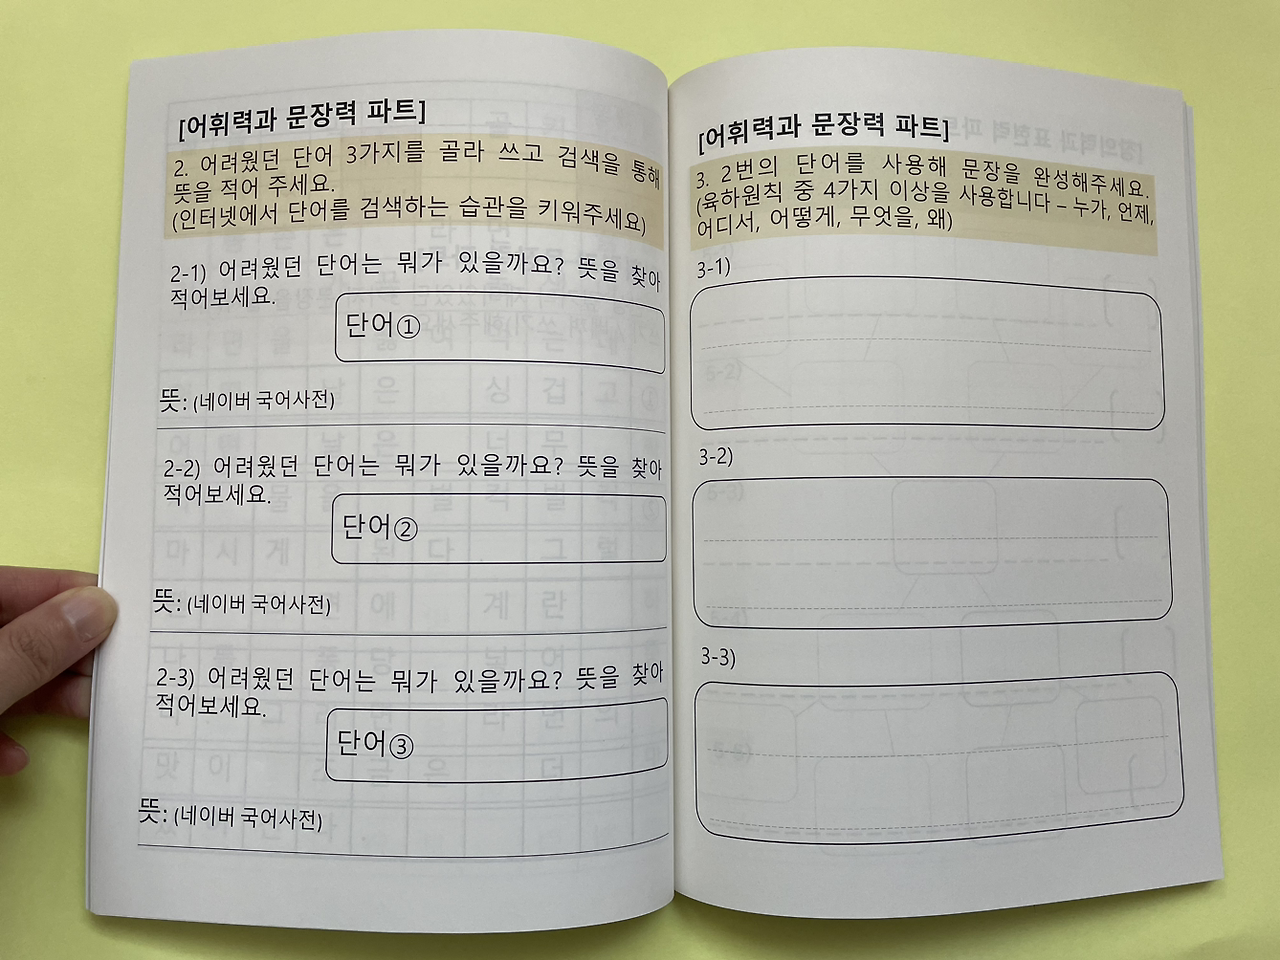 [어휘력과 문장력 파트]
2. 어려웠던 단어 3가지를 골라 쓰고 검색을 통해
뜻을 적어 주세요.
(인터넷에서 단어를 검색하는 습관을 키워주세요)
2-1) 어려웠던 단어는 뭐가 있을까요? 뜻을 찾아
적어보세요.
단어①
뜻: (네이버 국어사전)
2-2) 어려웠던 단어는 뭐가 있을까요? 뜻을 찾아
적어보세요.
단어②
뜻: (네이버 국어사전)
2-3) 어려웠던 단어는 뭐가 있을까요? 뜻을 찾아
적어보세요.
단어③
뜻: (네이버 국어사전)
[어휘력과 문장력 파트]
3. 2번의 단어를 사용해 문장을 완성해주세요.
(육하원칙 중 4가지 이상을 사용합니다 – 누가, 언제,
어디서, 어떻게, 무엇을, 왜)
3-1)
3-2)
3-3)